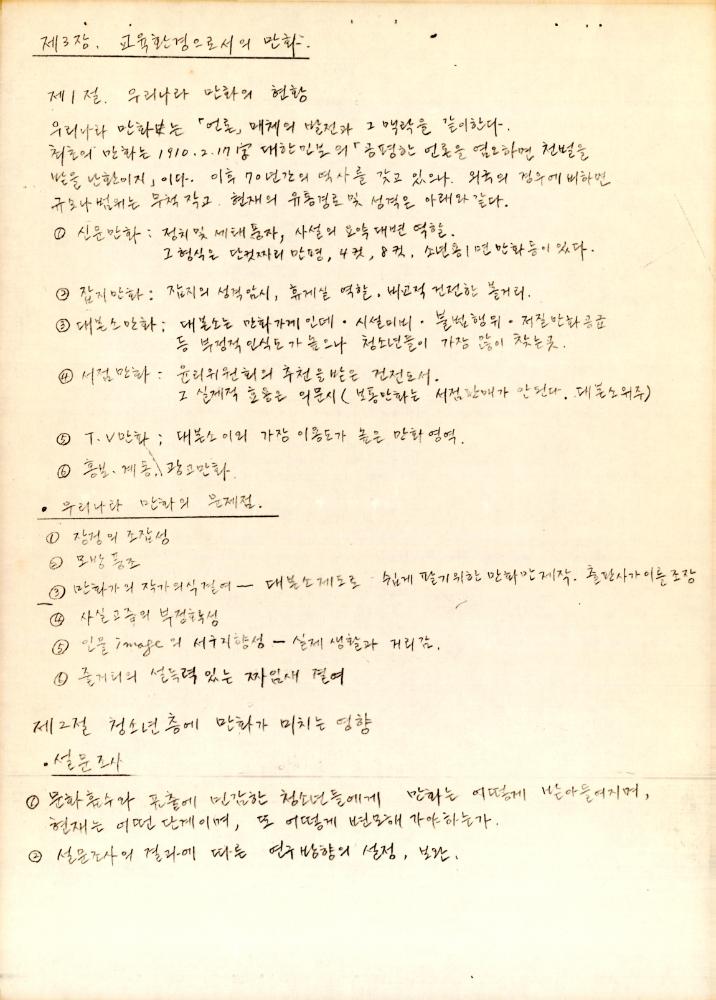 제3장. 교육환경으로서의 만화.
제1절. 우리나라 만화의 현황
우리나라 만화史는 「언론」매체의 발전과 그 맥락을 같이한다.
최초의 만화는 1910.2.17 대한민보의「공평한 언론을 염오하면 천벌을
받을 난환이지」이다. 이후 70년간의 역사를 갖고 있으나. 외국의 경우에 비하면
규모나 범위는 무척 작고. 현재의 유통경로 및 성격은 아래와 같다.
① 신문만화 : 정치 및 세태풍자, 사설의 요약 대변 역할.
그 형식은 단컷짜리 만평, 4컷, 8컷, 소년용 1면 만화 등이 있다.
② 잡지만화 : 잡지의 성격암시, 휴게실 역할. 비교적 건전한 볼거리.
③ 대본소만화 ; 대본소는 만화가게인데 · 시설미비 · 불법행위 · 저질만화공급
등 부정적 인식도가 높으나 청소년들이 가장 많이 찾는 곳.
④ 서점만화 : 윤리위원회의 추천을 받은 건전도서.
그 실제적 효용은 의문시 ( 보통만화는 서점판매가 안된다. 대본소위주)
⑤ T.V만화 ; 대본소 이외 가장 이용도가 높은 만화영역.
⑥ 홍보. 계몽. 광고만화.
• 우리나라 만화의 문제점.
① 장정의 조잡성
② 모방 풍조
③ 만화가의 작가의식 결여 — 대본소제도로 쉽게 팔기위한 만화만 제작. 출판사가 이를 조장
④ 사실고증의 부정확성
⑤ 인물 image의 서구지향성 — 실제 생활과 거리감.
⑥ 줄거리의 설득력 있는 짜임새 결여
제2절 청소년층에 만화가 미치는 영향
• 설문조사
① 문화흡수과 표출에 민감한 청소년들에게 만화는 어떻게 받아들여지며,
현재는 어떤 단계이며, 또 어떻게 변모해 가야하는가.
② 설문조사의 결과에 따른 연구방향의 설정, 보완.